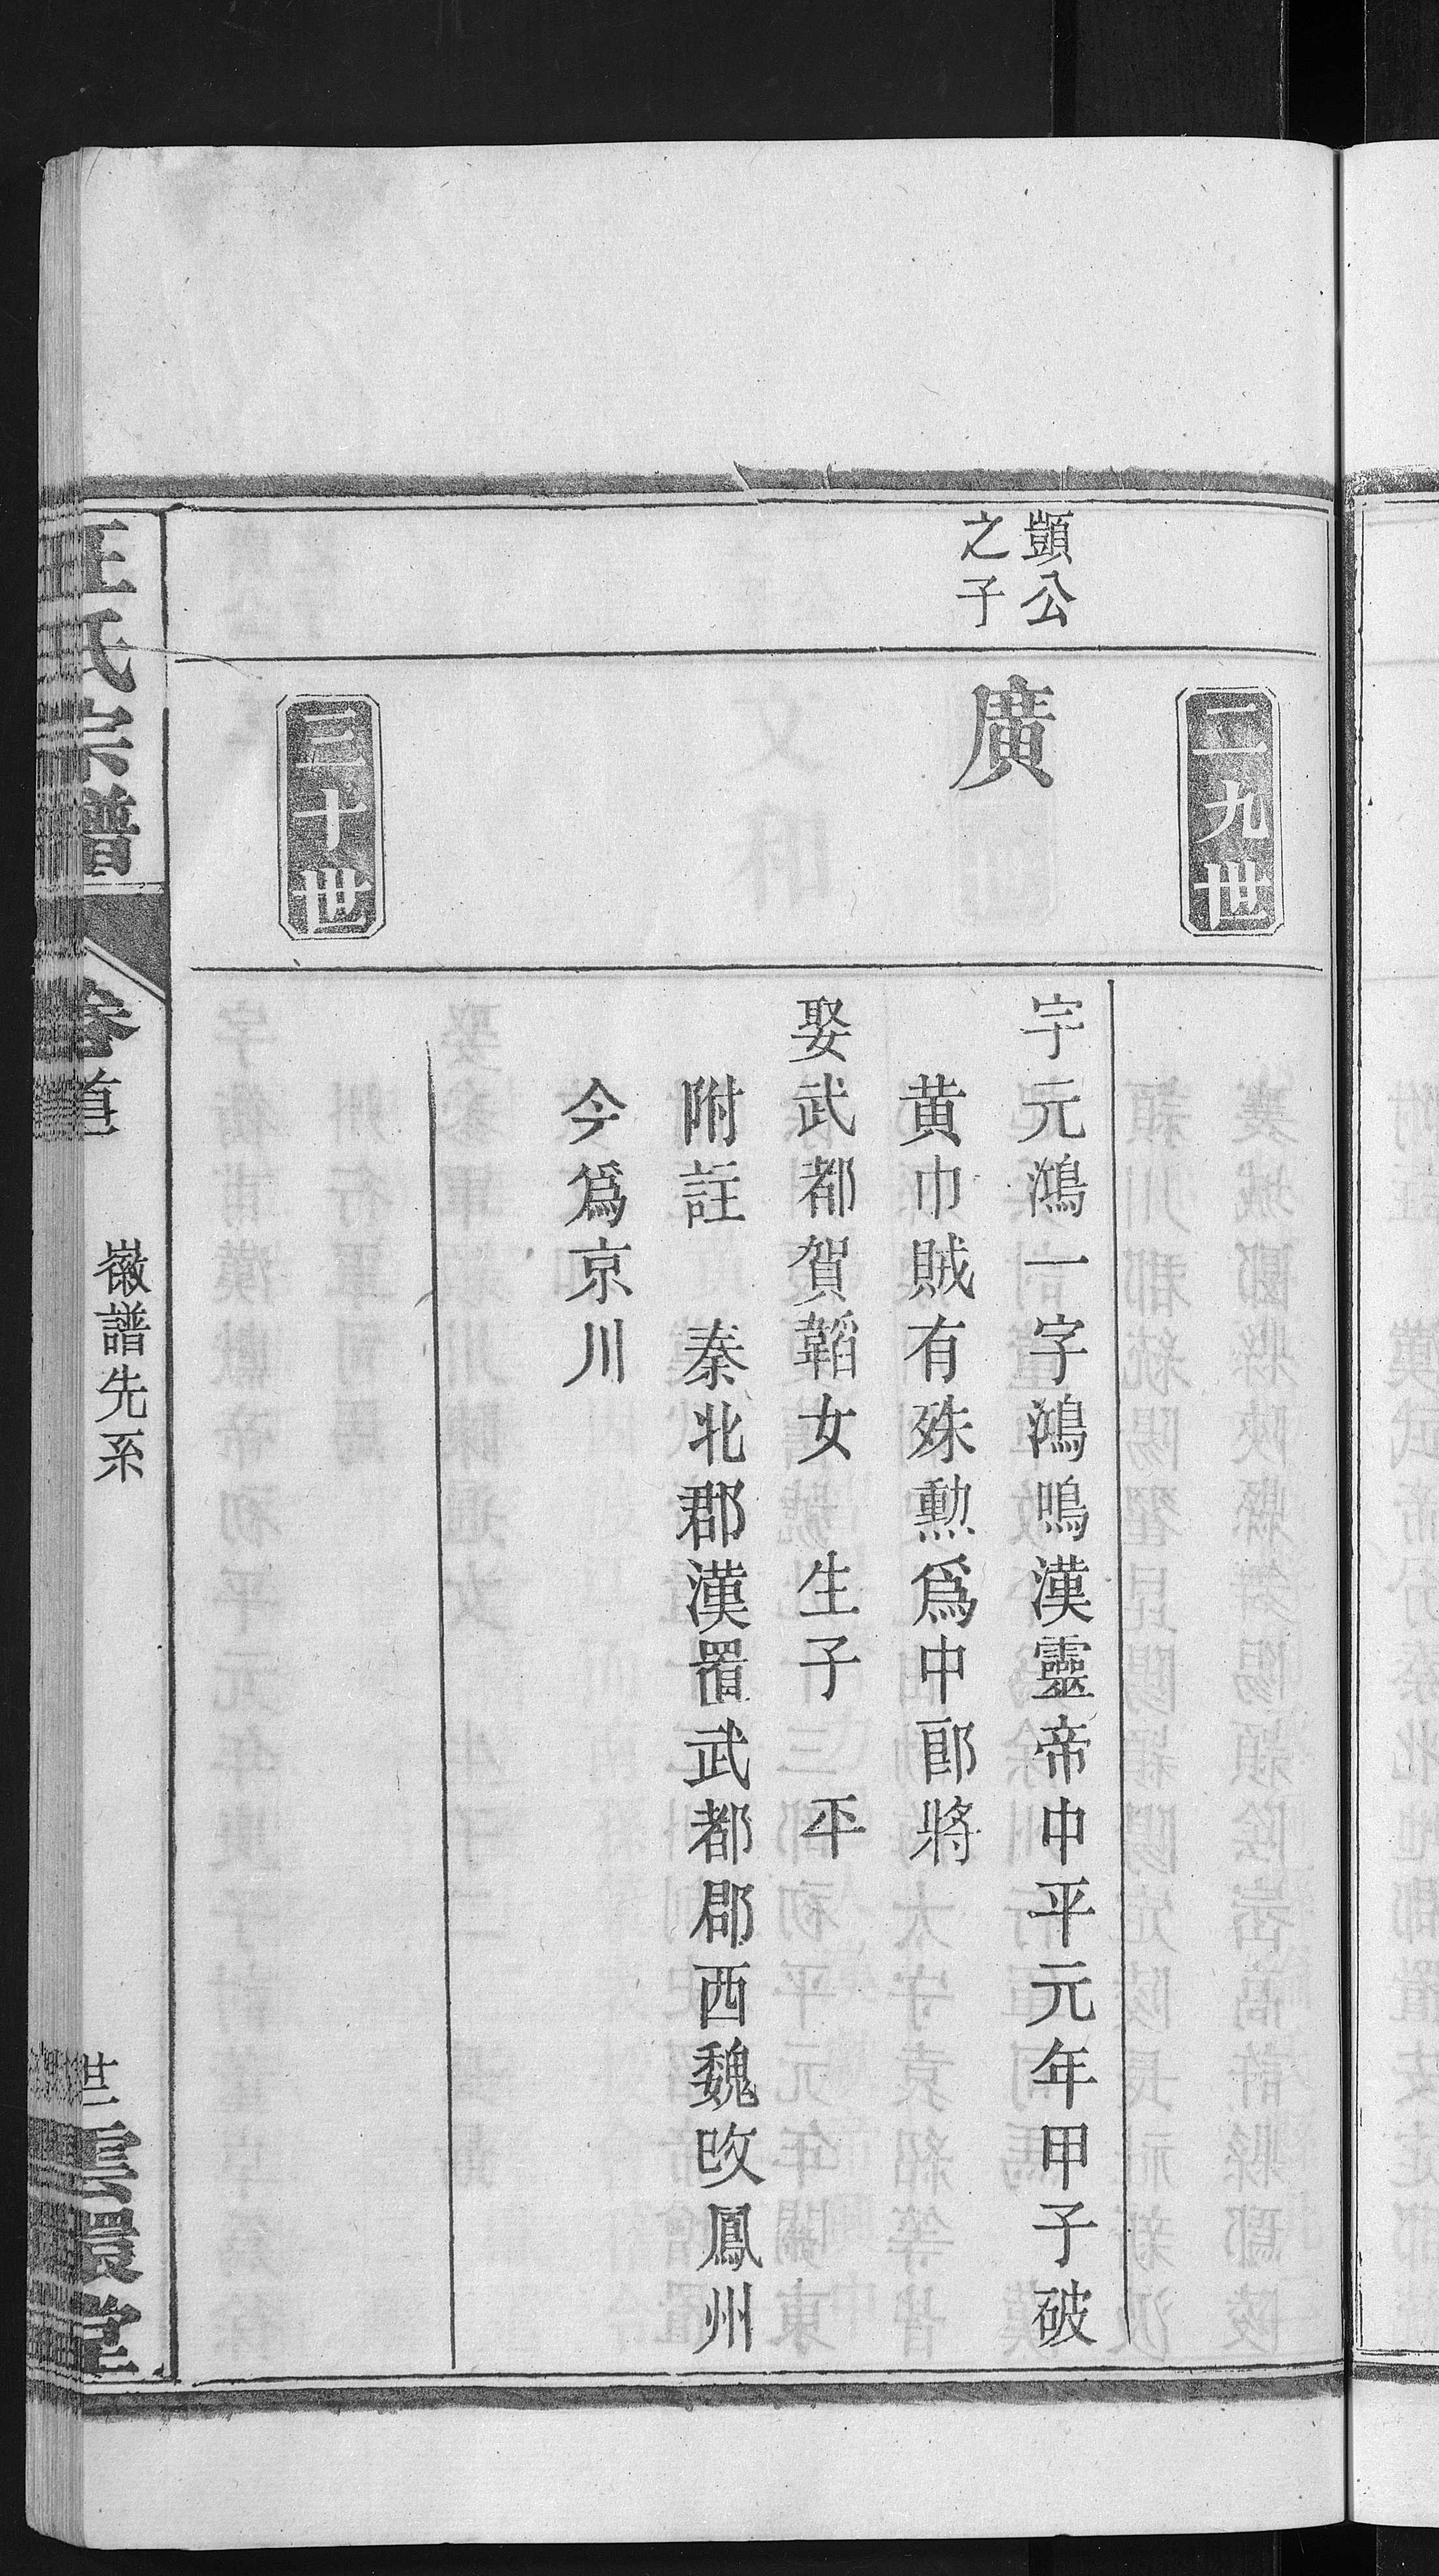 二九世
顗公
之子
廣
字元鴻一字鴻鳴漢靈帝中平元年甲子破
黃巾賊有殊勳爲中郎將
娶武都賀韜女 生子 平
附註 秦北郡漢置武都郡西魏改鳳州
今爲京川
三十世
汪氏宗譜
卷首
徽譜先系